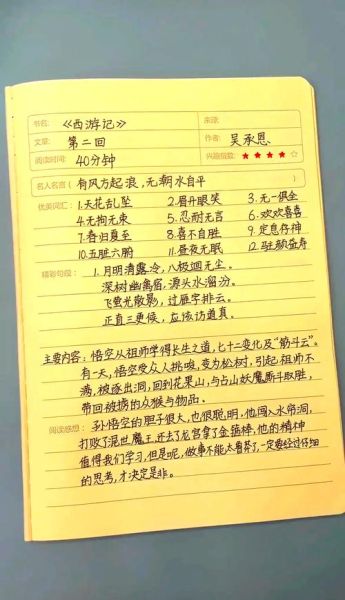 书名: 《西游记》 来源:
文章: 第二回 作者: 吴承恩
阅读时间: 40分钟 兴趣指数: ★★★★☆
名人名言 ( 有风方起浪,无潮水自平
优美词汇: 1.天花乱坠 2.眉开眼笑 3.无一俱全
4.无拘无束 5.忍耐无言 6.欢欢喜喜
7.春归夏至 8.喜不自胜 9.定息存神
10.五脏六腑 11.昼夜无眠 12.驻颜益寿
精彩句段: 1.月明清露冷,八极迥无尘。
深树幽禽宿,源头水溜汾。
飞萤光散影,过雁字排云。
正直三更候,应该访道真。
主要内容: 悟空从祖师学得长生之道,七十二变化及“筋斗云”。
有一天,悟空受众人挑唆,变为松树,引起祖师不
满,被逐出洞,回到花果山,与占山妖魔断斗取胜,
带回被掳的众猴与物品。
阅读感想: 孙悟空的胆子很大,也很聪明,他闯入水帘洞,
打败了混世魔王,还去了龙宫拿了金箍棒,他的精神
值得我们学习,但是呢,做事不能太鲁莽了,一定要经过仔细
的思考,才决定是非。